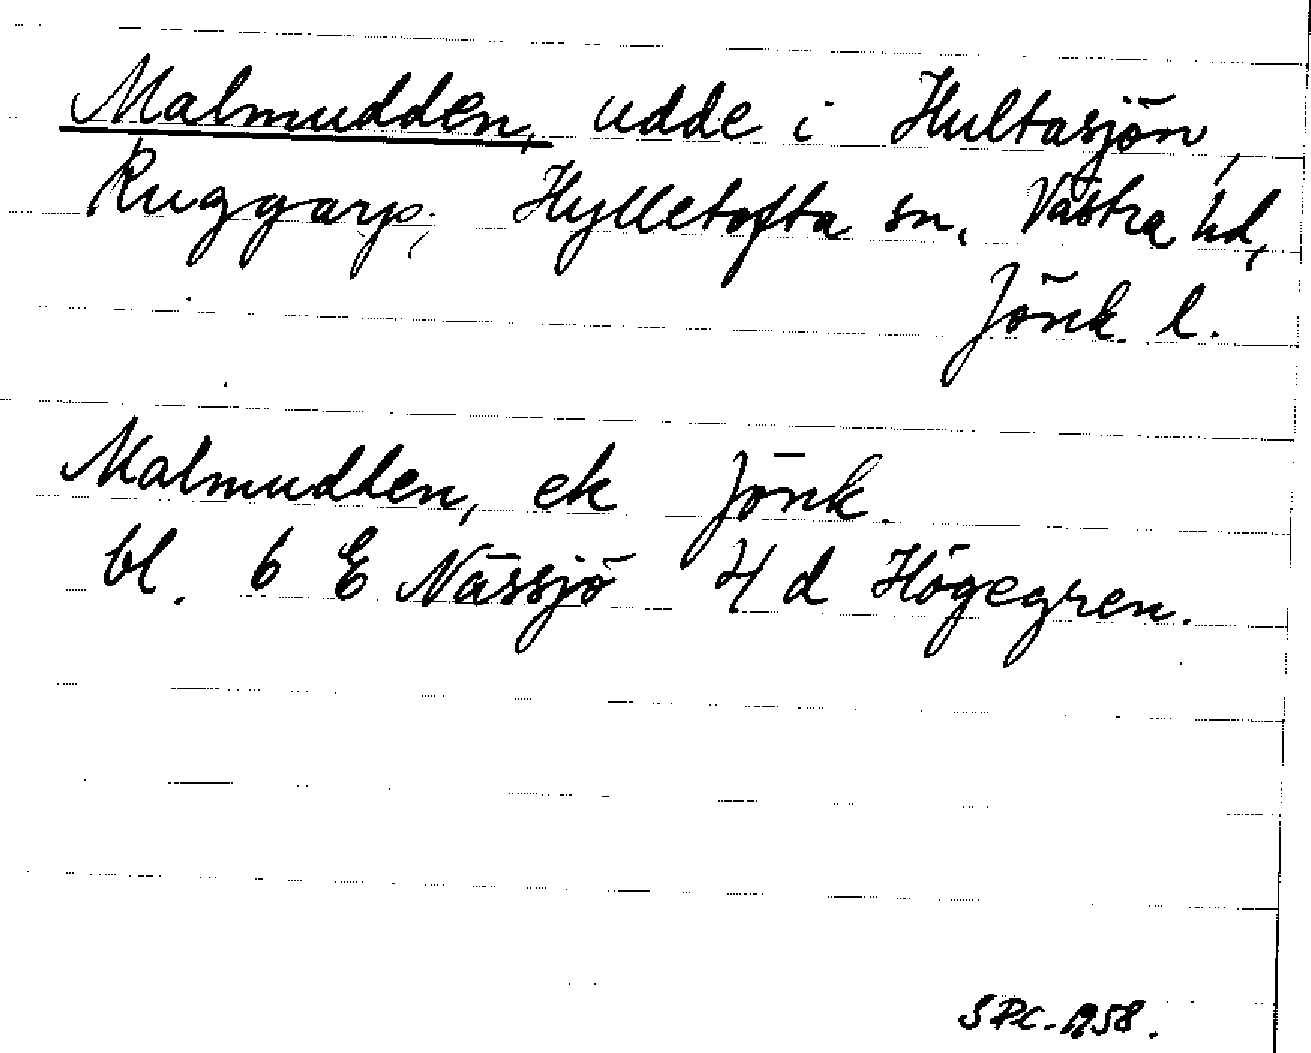 Malmudden, udde i Hultasjön,
Ruggarp, Hylletofta sn, Västra hd,
Jönk. l.
Malmudden, ek Jönk.
bl. 6 E Nässjö 4 d Högegren.
1958.